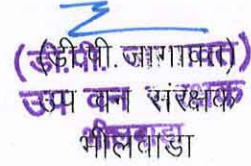 (डी.पी. जागावत)
उप वन संरक्षक
भीलवाड़ा